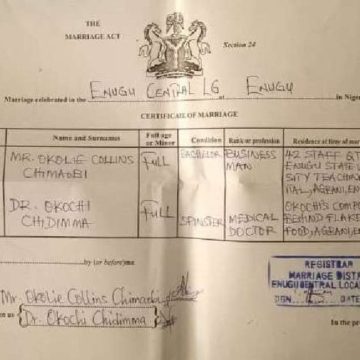 THE
MARRIAGE ACT
Section 24
Marriage celebrated in the ENUGU CENTRAL LG of ENUGU in Niger
CERTIFICATE OF MARRIAGE
Name and Surnames Full age or Minor Condition Rank or profession Residence at time of marr
MR. OKOLIE COLLINS CHIMAOBI FULL BACHELOR BUSINESS MAN 42 STAFF QT ENUGU STATE SITY TEACHIN ITAL,
DR. OKOCHI CHIDIMMA FULL SPINSTER MEDICAL DOCTOR OKOCHI'S COMPO BEHIND FLAK FOOD,
by (or before) me.
Mr. Okolie Collins Chimaobi
en us Dr. Okochi Chidimma
REGISTRAR
MARRIAGE DIST
ENUGU CENTRAL LOCA
SGN DATE
In the p